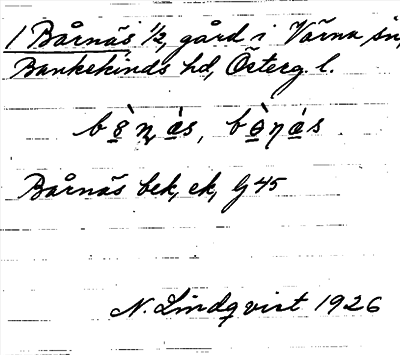 1 Bårnäs 1/2, gård i Värna sn,
Bankekinds hd, Österg. l.
Bårnäs bek, ek, G 45
N. Lindqvist 1926